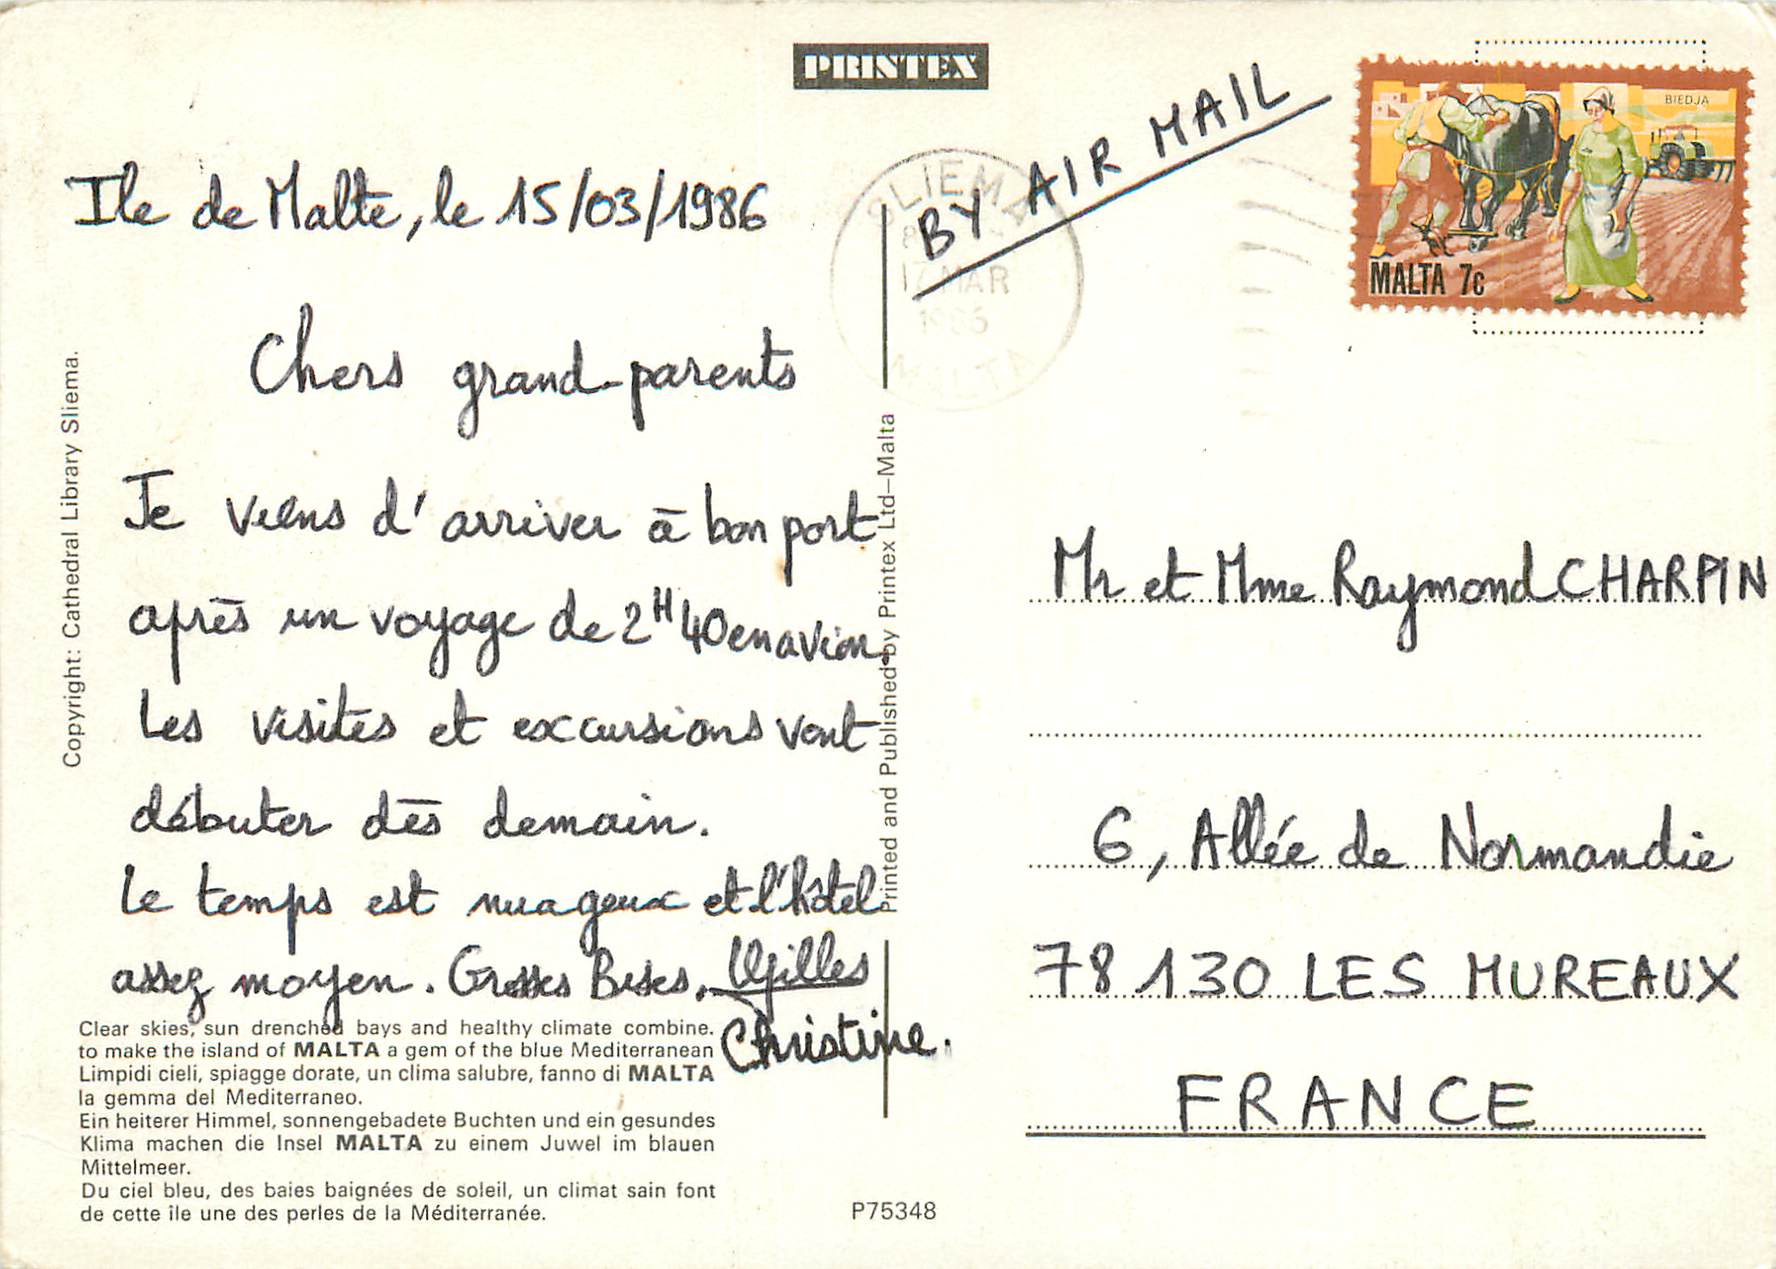 PRINTEX
BY AIR MAIL
BIEDJA
MALTA 7c
SLIEMA
17 MAR
1986
MALTA
Ile de Malte, le 15/03/1986
Chers grand-parents
Je viens d'arriver à bon port
après un voyage de 2H40 en avion.
Les visites et excursions vont
débuter dès demain.
Le temps est nuageux et l'hôtel
assez moyen. Grosses Bises, Gilles
Christine.
Copyright: Cathedral Library Sliema.
Printed and Published by Printex Ltd–Malta
Mr et Mme Raymond CHARPIN
6, Allée de Normandie
78130 LES MUREAUX
FRANCE
Clear skies, sun drenched bays and healthy climate combine.
to make the island of MALTA a gem of the blue Mediterranean
Limpidi cieli, spiagge dorate, un clima salubre, fanno di MALTA
la gemma del Mediterraneo.
Ein heiterer Himmel, sonnengebadete Buchten und ein gesundes
Klima machen die Insel MALTA zu einem Juwel im blauen
Mittelmeer.
Du ciel bleu, des baies baignées de soleil, un climat sain font
de cette île une des perles de la Méditerranée.
P75348